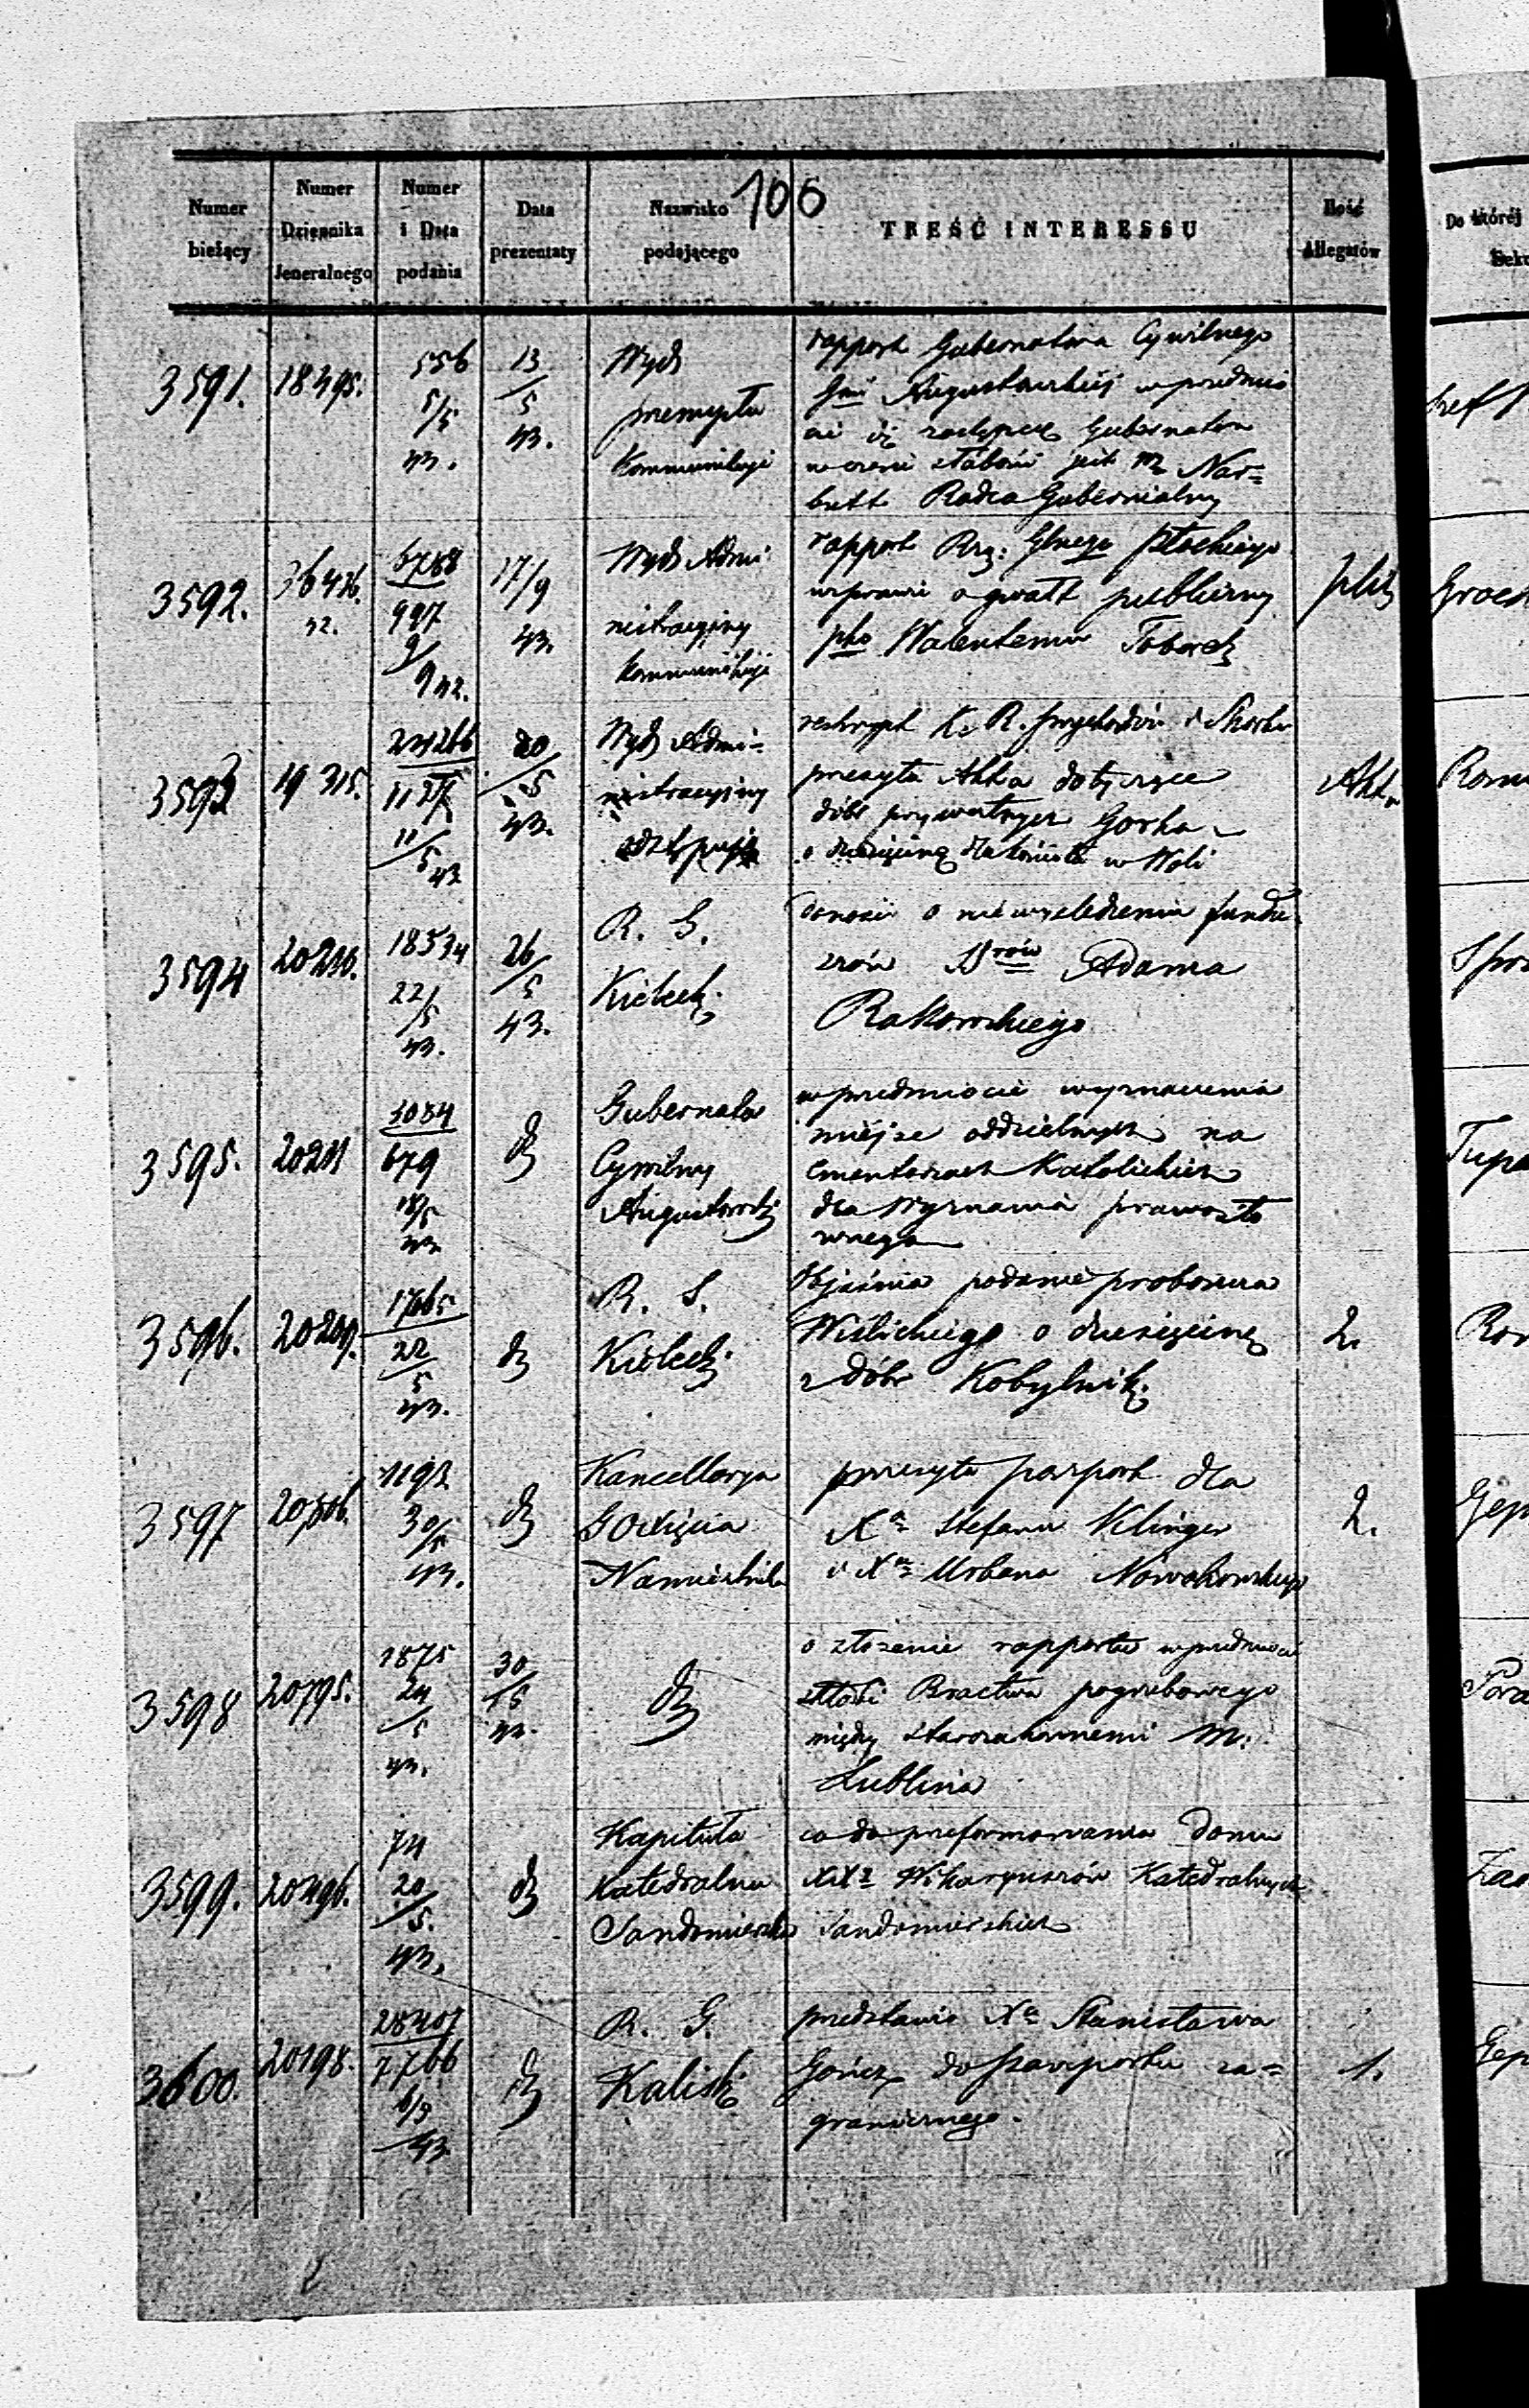 106
Numer bieżący
Numer Dziennika Jeneralnego
Numer i Data podania
Data prezentaty
Nazwisko podającego
TREŚĆ INTERESSU
Ilość Allegatów
Do której
3591. 18495. 556 5/5 43. 13/5 43.
Wydz
przemysłu
kommunikuje
rapport Gubernatora Cywilnego
Gnii Augustowskiej w przedmio
cie iż zastępcą Gubernatora
w czasie słabości jest P. Nar=
butt Radca Gubernialny
3592. 36476. 42. 6788 997 9/9 42. 17/9 43.
Wydz Admi
nistracyjny
kommunikuje
rapport Rzą: Glnego Płockiego
w sprawie o gwałt publiczny
pko Walentemu
plik
3593 19315. 11/5 43 20/5 43.
Wydz Admi=
nistracyjny
odstępuje
reskrypt K. R. Przychodów i Skarbu
przesyła Akta dotyczące
dóbr prywatnych Gorka
o dziesięcinę dla kościoła w Woli
Akta
3594 20210. 18534 22/5 43. 26/5 43.
R. G.
Kielecki
donosi o niewyśledzeniu fundu
szów Srów Adama
Rakowskiego
3595. 20211 3084 679 18/5 43 dt
Gubernator
Cywilny
Augustowski
w przedmiocie wyznaczenia
miejsc oddzielnych na
cmentarzach Katolickich
dla Wyznania prawosła
wnego
3596. 20209. 22/5 43. dt
R. G.
Kielecki
Objaśnia podanie proboszcza
Wiślickiego o dziesięcinę
z dóbr Kobylniki
2.
3597 1192 30/5 43. dt
Kancellarya
JO Xięcia
Namiestnika
przesyła paszport dla
Xa Stefana Klinger
i Xa Urbana Nowakowskiego
2.
3598 20795. 1875 24/5 43. 30/5 43. dt
o złożenie rapportu w przedmiocie
składki Bractwa pogrzebowego
między starozakonnemi m:
Lublina
3599. 20496. 74 20/5. 43. dt
Kapituła
Katedralna
Sandomierska
co do preformowania domu
XXy Wikaryuszów Katedralnych
Sandomierskich
3600. 20198. 28407 7766 43 dt
R. G.
Kaliski
przedstawia Xa Stanisława
do paszportu za=
granicznego.
1.